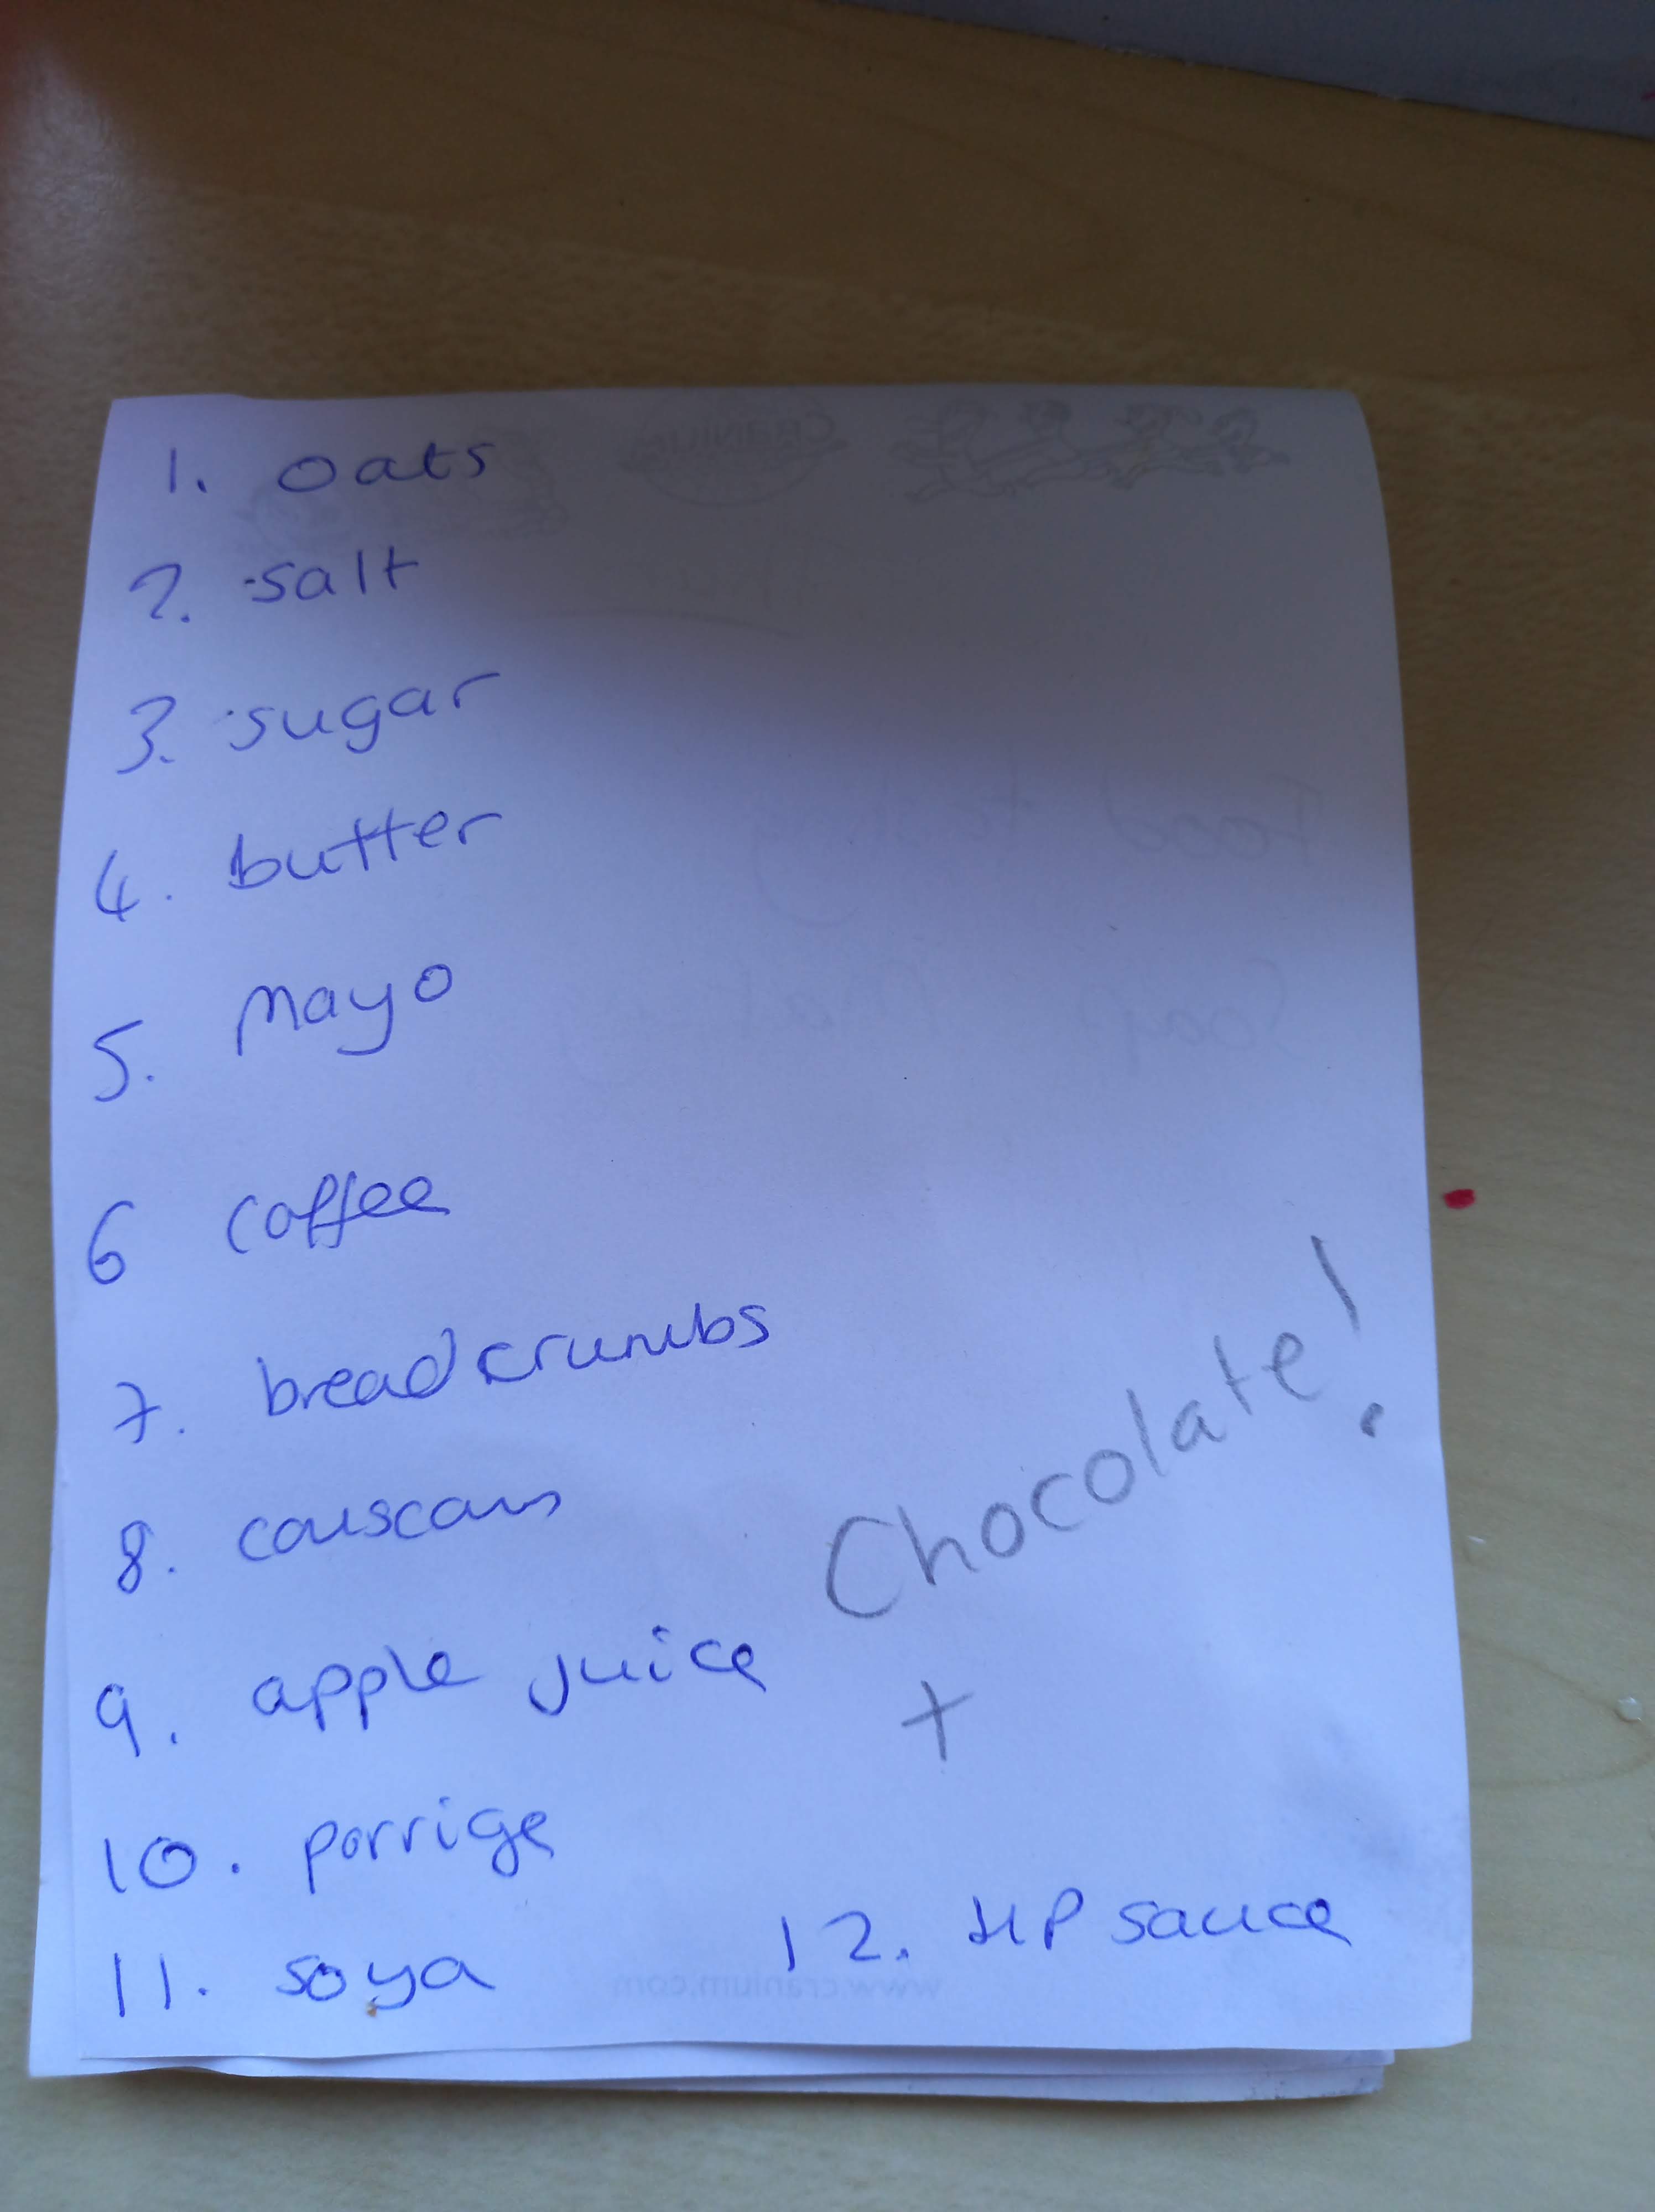 1. oats
2. salt
3. sugar
4. butter
5. Mayo
6 coffee
7. breadcrumbs
8. couscous
9. apple juice
10. porrige
11. soya
12. HP sauce
+
Chocolate!
Cranium
Food tasting
Soap Making
www.cranium.com